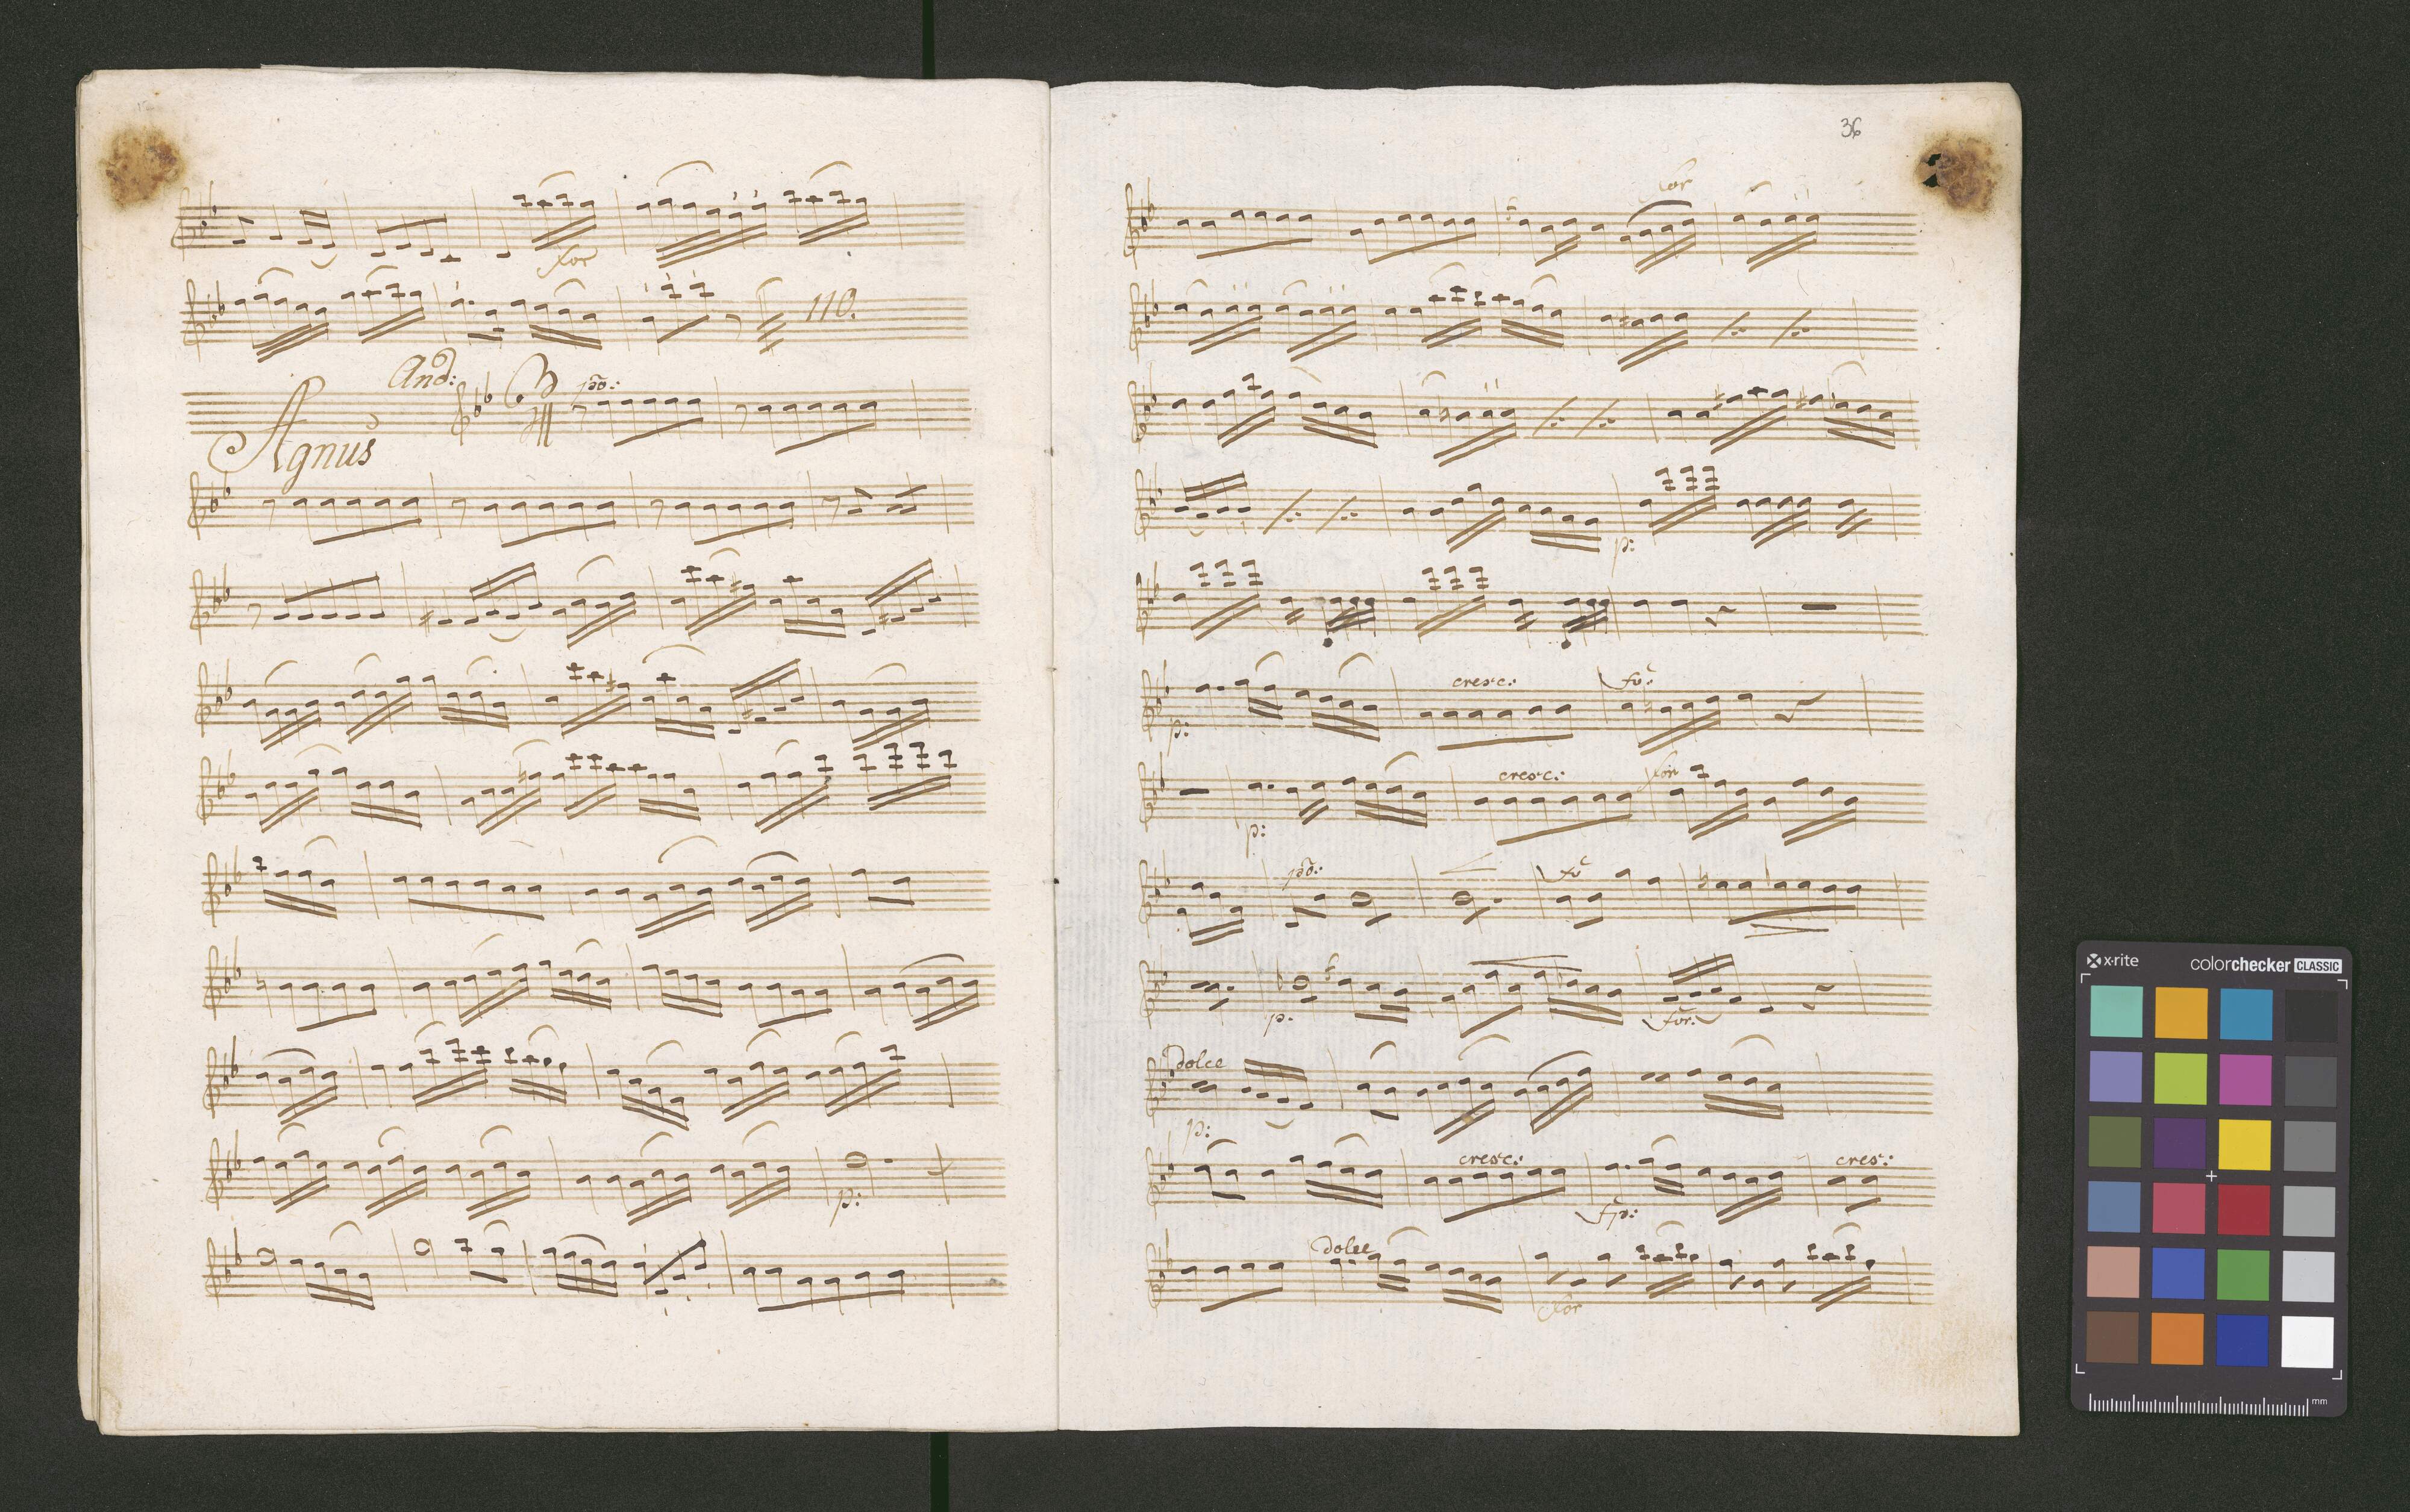 for
110.
And:
po:
Agnus
p:
36
for
p:
cresc:
fo:
p:
cresc:
for
p:
po:
fo
p.
for:
dolce
p:
cresc:
cres:
fp:
dolce
for
x-rite
colorchecker CLASSIC
mm